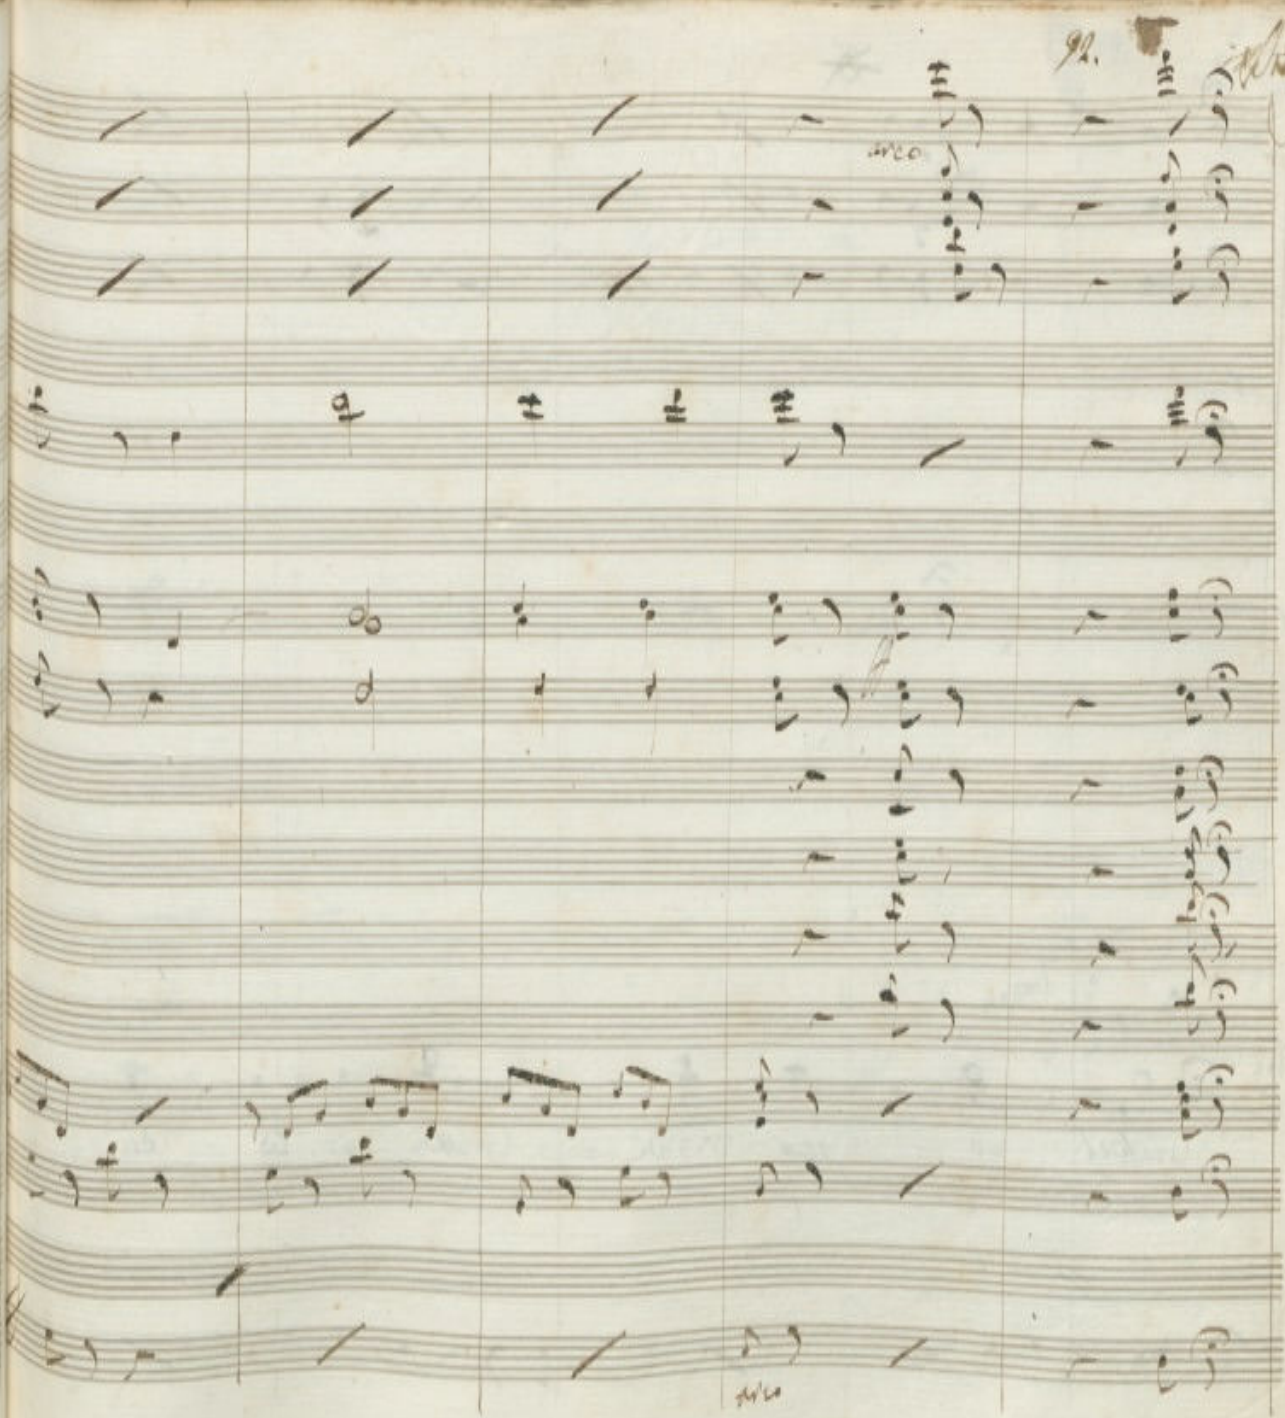 92.
arco
ff
arco